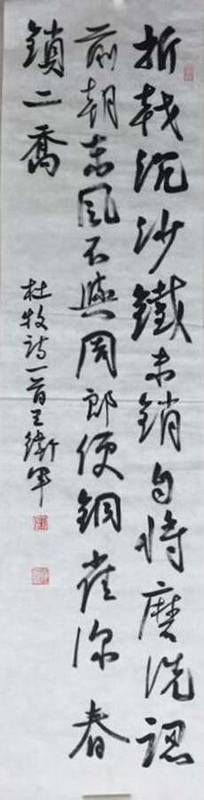 折戟沉沙鐵未銷自將磨洗認
前朝東風不與周郎便銅雀深春
鎖二喬
杜牧诗一首王衛軍